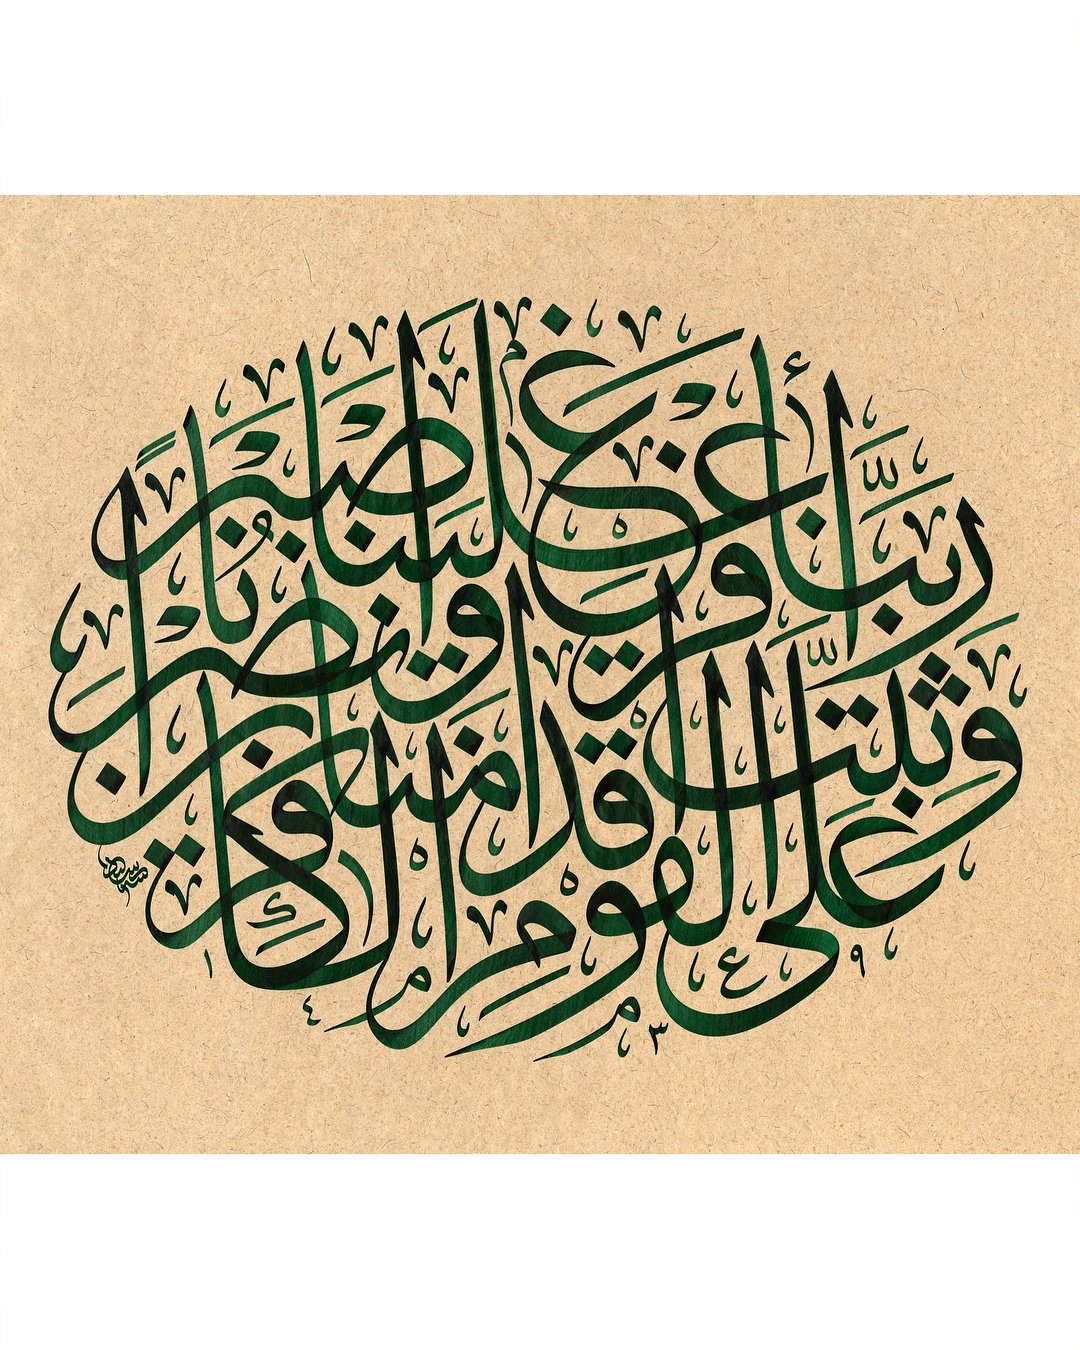 ربنا أفرغ علينا صبراً
وثبت أقدامنا وانصرنا
على القوم الكافرين
١٤٣٩